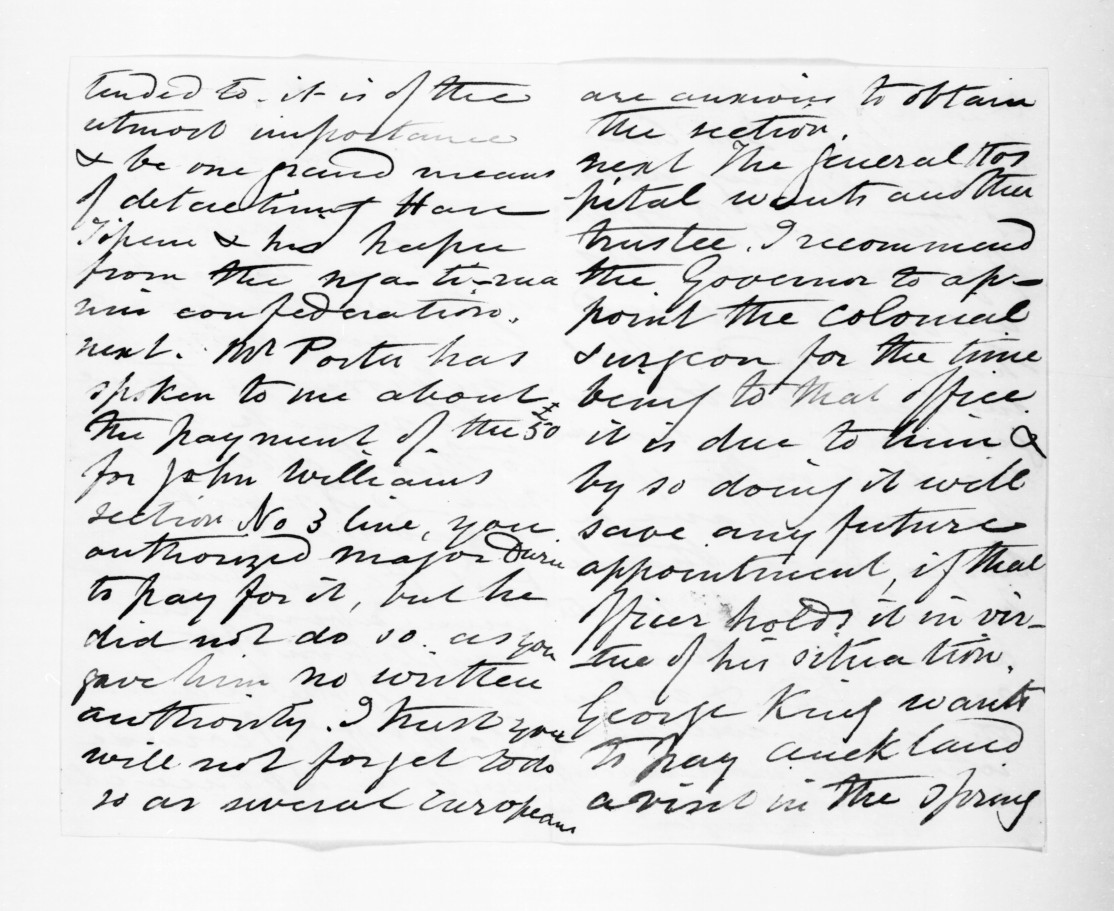 tended to. it is of the
utmost importance
& be one grand means
of detaching Hare
Tipene & his hapu
from the nga-ti-rua
nui confederation.
next. Mr Porter has
spoken to me about
the payment of the £50
for John Williams
section No 3 line, you
authorized major Durie
to pay for it, but he
did not do so. as you
gave him no written
authority. I trust you
will not forget to do
so as several Europeans
are anxious to obtain
the section.
next The General Hos
-pital wants another
trustee. I recommend
the Governor to ap-
point the colonial
surgeon for the time
being to that office
it is due to him &
by so doing it will
save any future
appointment, if that
officer holds it in vir-
-tue of his situation.
George King wants
to pay auckland
a visit in the spring